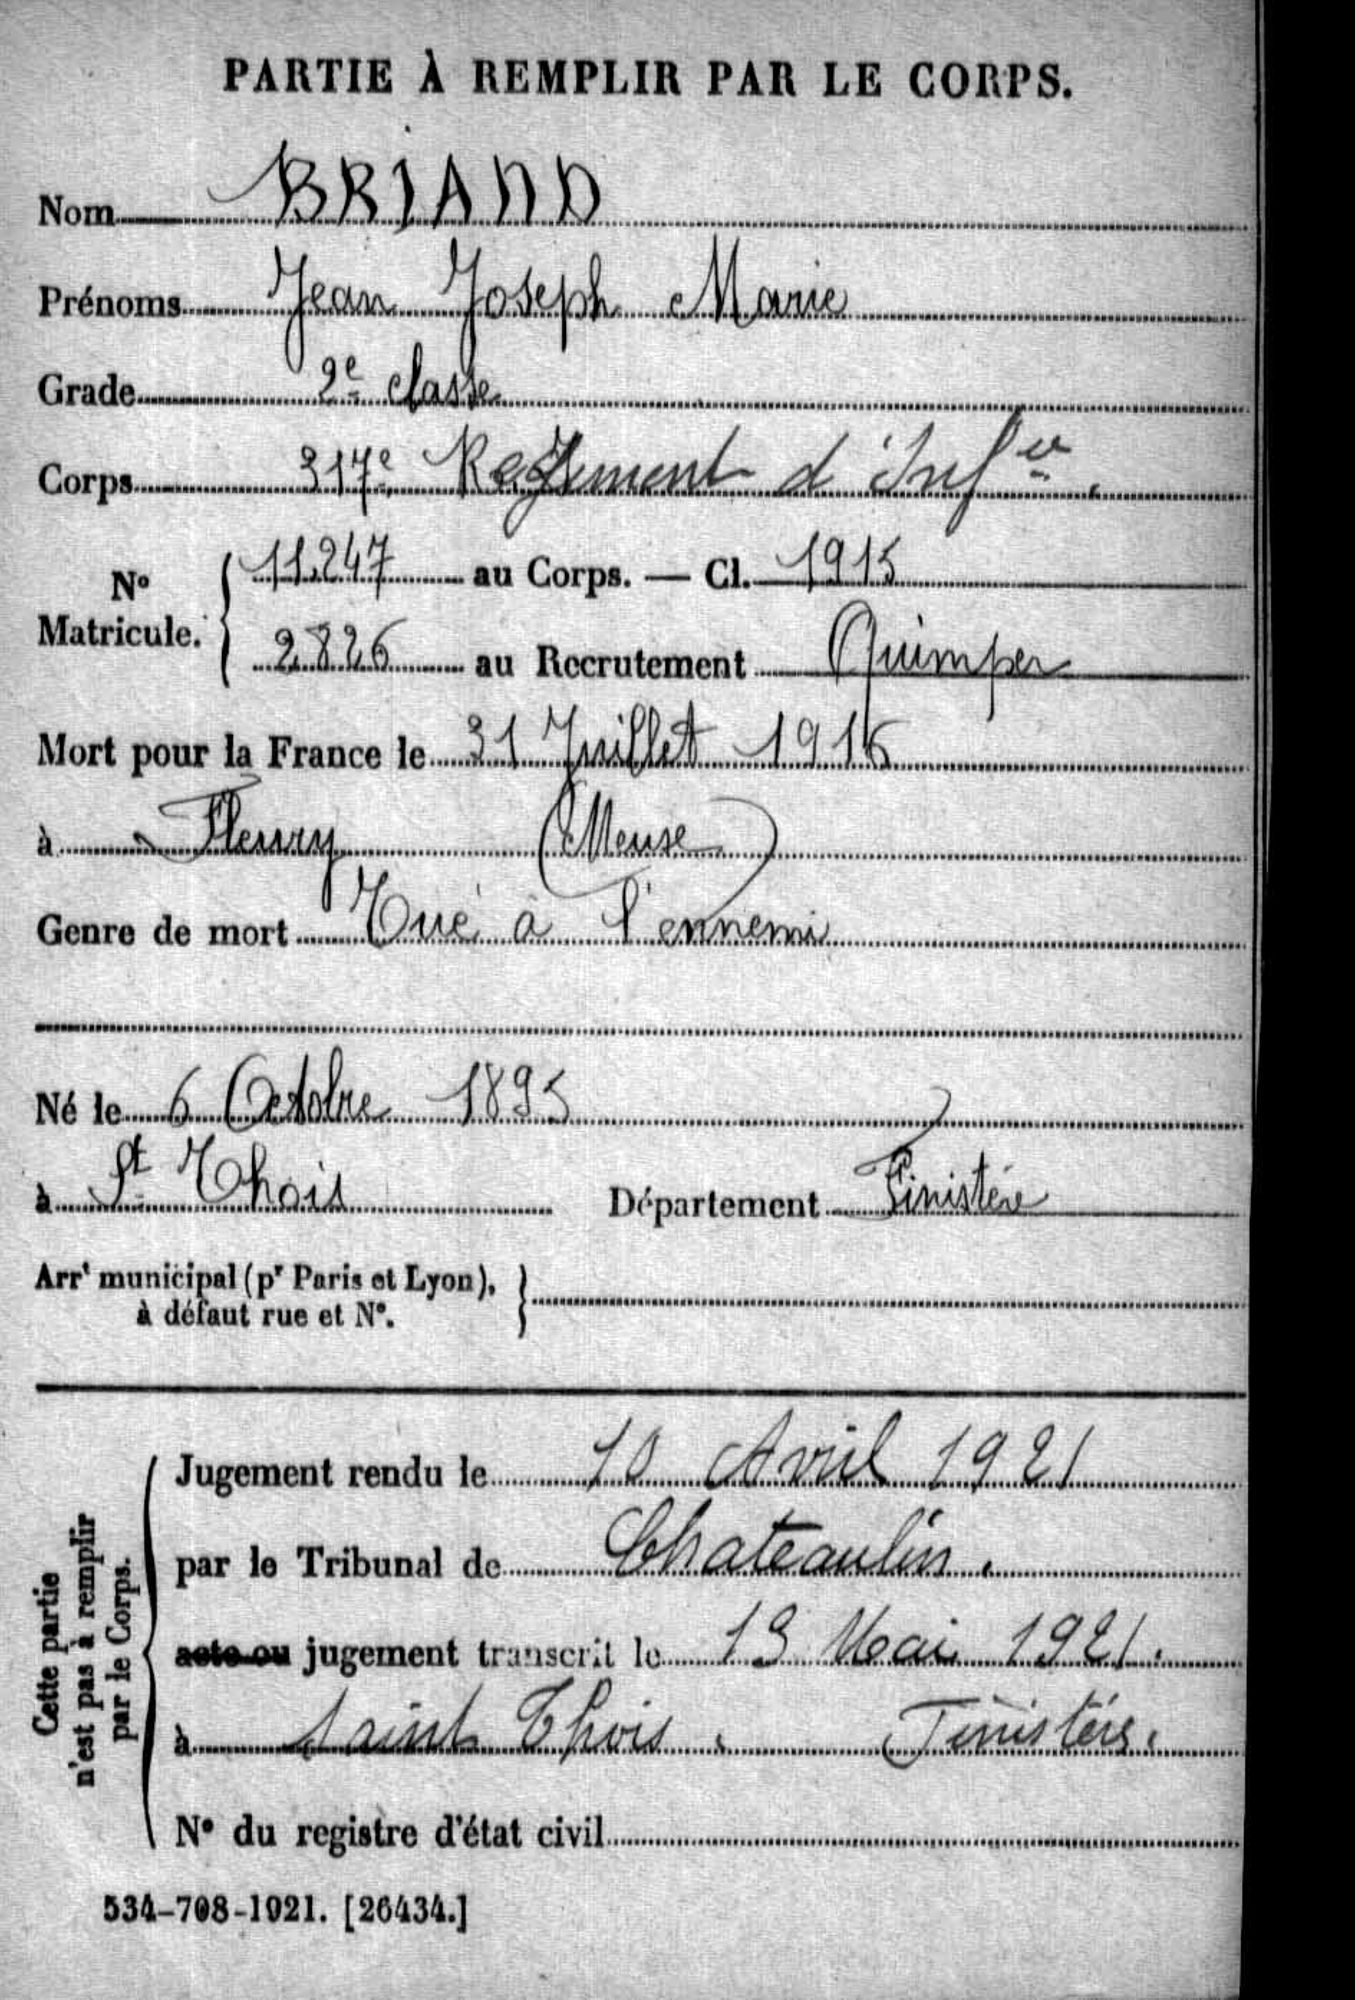 PARTIE À REMPLIR PAR LE CORPS.
Nom BRIAND
Prénoms Jean Joseph Marie
Grade 2e classe
Corps 317e Regiment d'Infie.
No Matricule. { 11.247 au Corps. — Cl. 1915
2826 au Recrutement Quimper
Mort pour la France le 31 Juillet 1916
à Fleury (Meuse)
Genre de mort Tué à l'ennemi
Né le 6 Octobre 1895
à St Thois Département Finistère
Arrt municipal (pr Paris et Lyon), }
à défaut rue et No.
Cette partie
n'est pas à remplir
par le Corps.
Jugement rendu le 10 Avril 1921
par le Tribunal de Chateaulin.
acte ou jugement transcrit le 13 Mai 1921.
à Saint Thois. Finistère.
No du registre d'état civil
534-708-1921. [26434.]